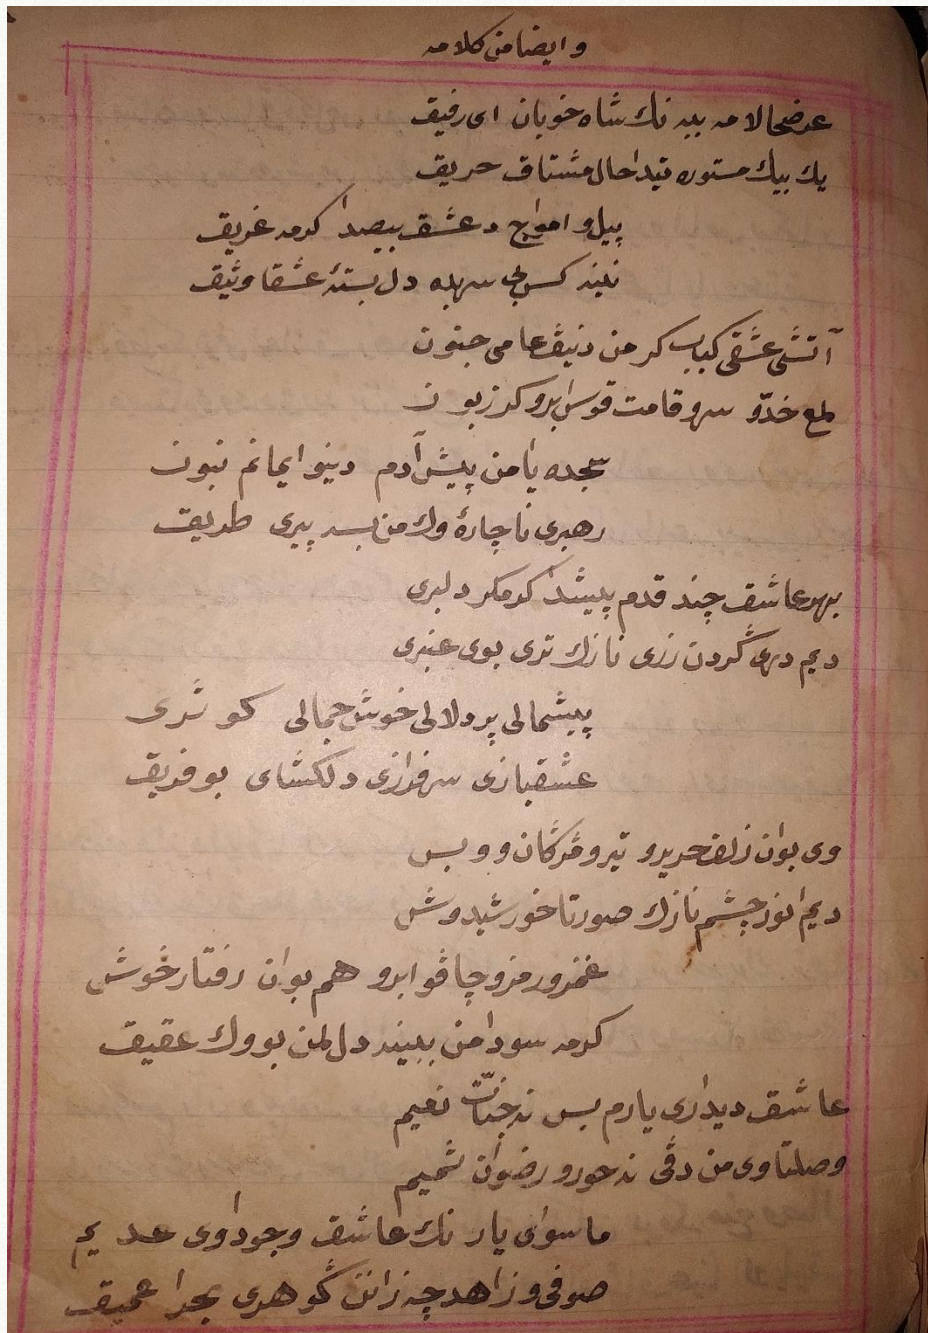 وايضا من كلامه
عرضحالا مه ببه نك شاه خوبان اى رفيق
يك بيك مستوره قيد احال مشتاق حريق
پيل و امواج د عشق بيصدا كرمه غريق
نينه كس لى سهله دل بستهٔ عشقا وثيق
آتشى عشقى كباب كر من دنيڤ عامى جنون
لمع خدّو سرو قامت قوس ابرو كر زبون
سجده يا من پيش آدم دينو ايمانم نبون
رهبرى ناچارهٔ وك من بسر پيرى طريق
بهر عاشق چند قدم پيشدا كو مكر دلبرى
ديم درى گردن زرى نازك ترى بوى عنبرى
پيشمالى پر دلالى خوش جمالى كوثرى
عشقبازى سرفرازى دلكشاى بو فريق
وى بوان زلف حرير و تير و مژگان و و بس
ديم انور چشم نازك صورتا خورشيدوش
غمز و رمز و چاڤو ابرو هم بوان رفتار خوش
كرمه سودا من ببيند دل لمن بو وك عقيق
عاشق ديدارى يارم بس نه جنّات نعيم
وصلتا وى من دڤى نه حور و رضوان شميم
ماسواى يار نك عاشق وجودا وى عديم
صوفى و زاهد چه زانن گوهرى بحرا عميق